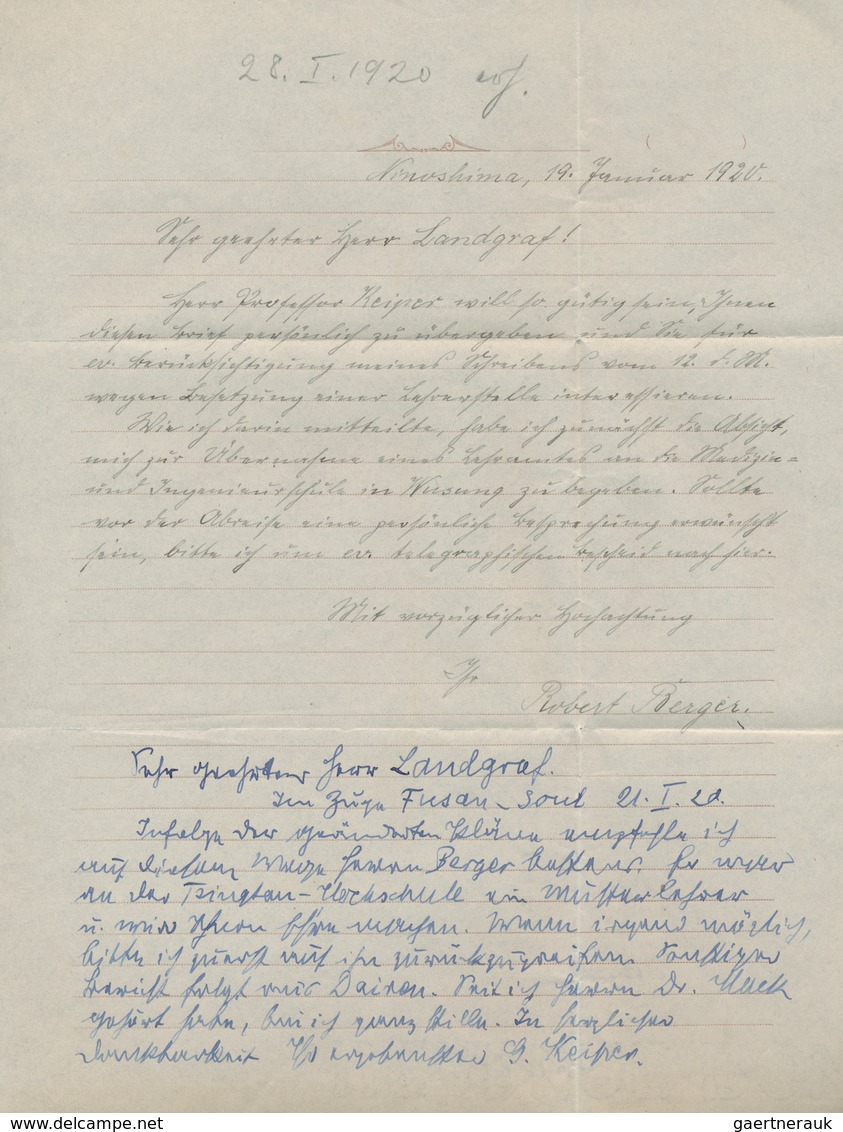 28. I. 1920 erh.
Ninoshima, 19. Januar 1920.
Sehr geehrter Herr Landgraf!
Herr Professor Keiper will so gütig sein, Ihnen
diesen Brief persönlich zu übergeben und Sie für
ev. Berücksichtigung meines Schreibens vom 12. d. M.
wegen Besetzung einer Lehrerstelle interessieren.
Wie ich darin mitteilte, habe ich zunächst die Absicht,
mich zur Übernahme eines Lehramtes an die Medizin-
und Ingenieurschule in Wusung zu begeben. Sollte
vor der Abreise eine persönliche Besprechung erwünscht
sein, bitte ich um ev. telegraphischen Bescheid nach hier.
Mit vorzüglicher Hochachtung
Ihr
Robert Berger.
Sehr geehrter Herr Landgraf.
Im Zuge Fusan-Soul 21. I. 20.
Infolge der geänderten Pläne empfehle ich
auf diesem Wege Herrn Berger bestens. Er war
an der Tsingtau-Hochschule ein Musterlehrer
u. wird Ihnen Ehre machen. Wenn irgend möglich,
bitte ich zuerst auf ihn zurückzugreifen. Sonstiger
Bericht folgt aus Dairen. Seit ich Herrn Dr. Mack
gehört habe, bin ich ganz stille. In herzlicher
Dankbarkeit Ihr ergebenster G. Keiper.
DELCAMPE.NET
gaertnerauk